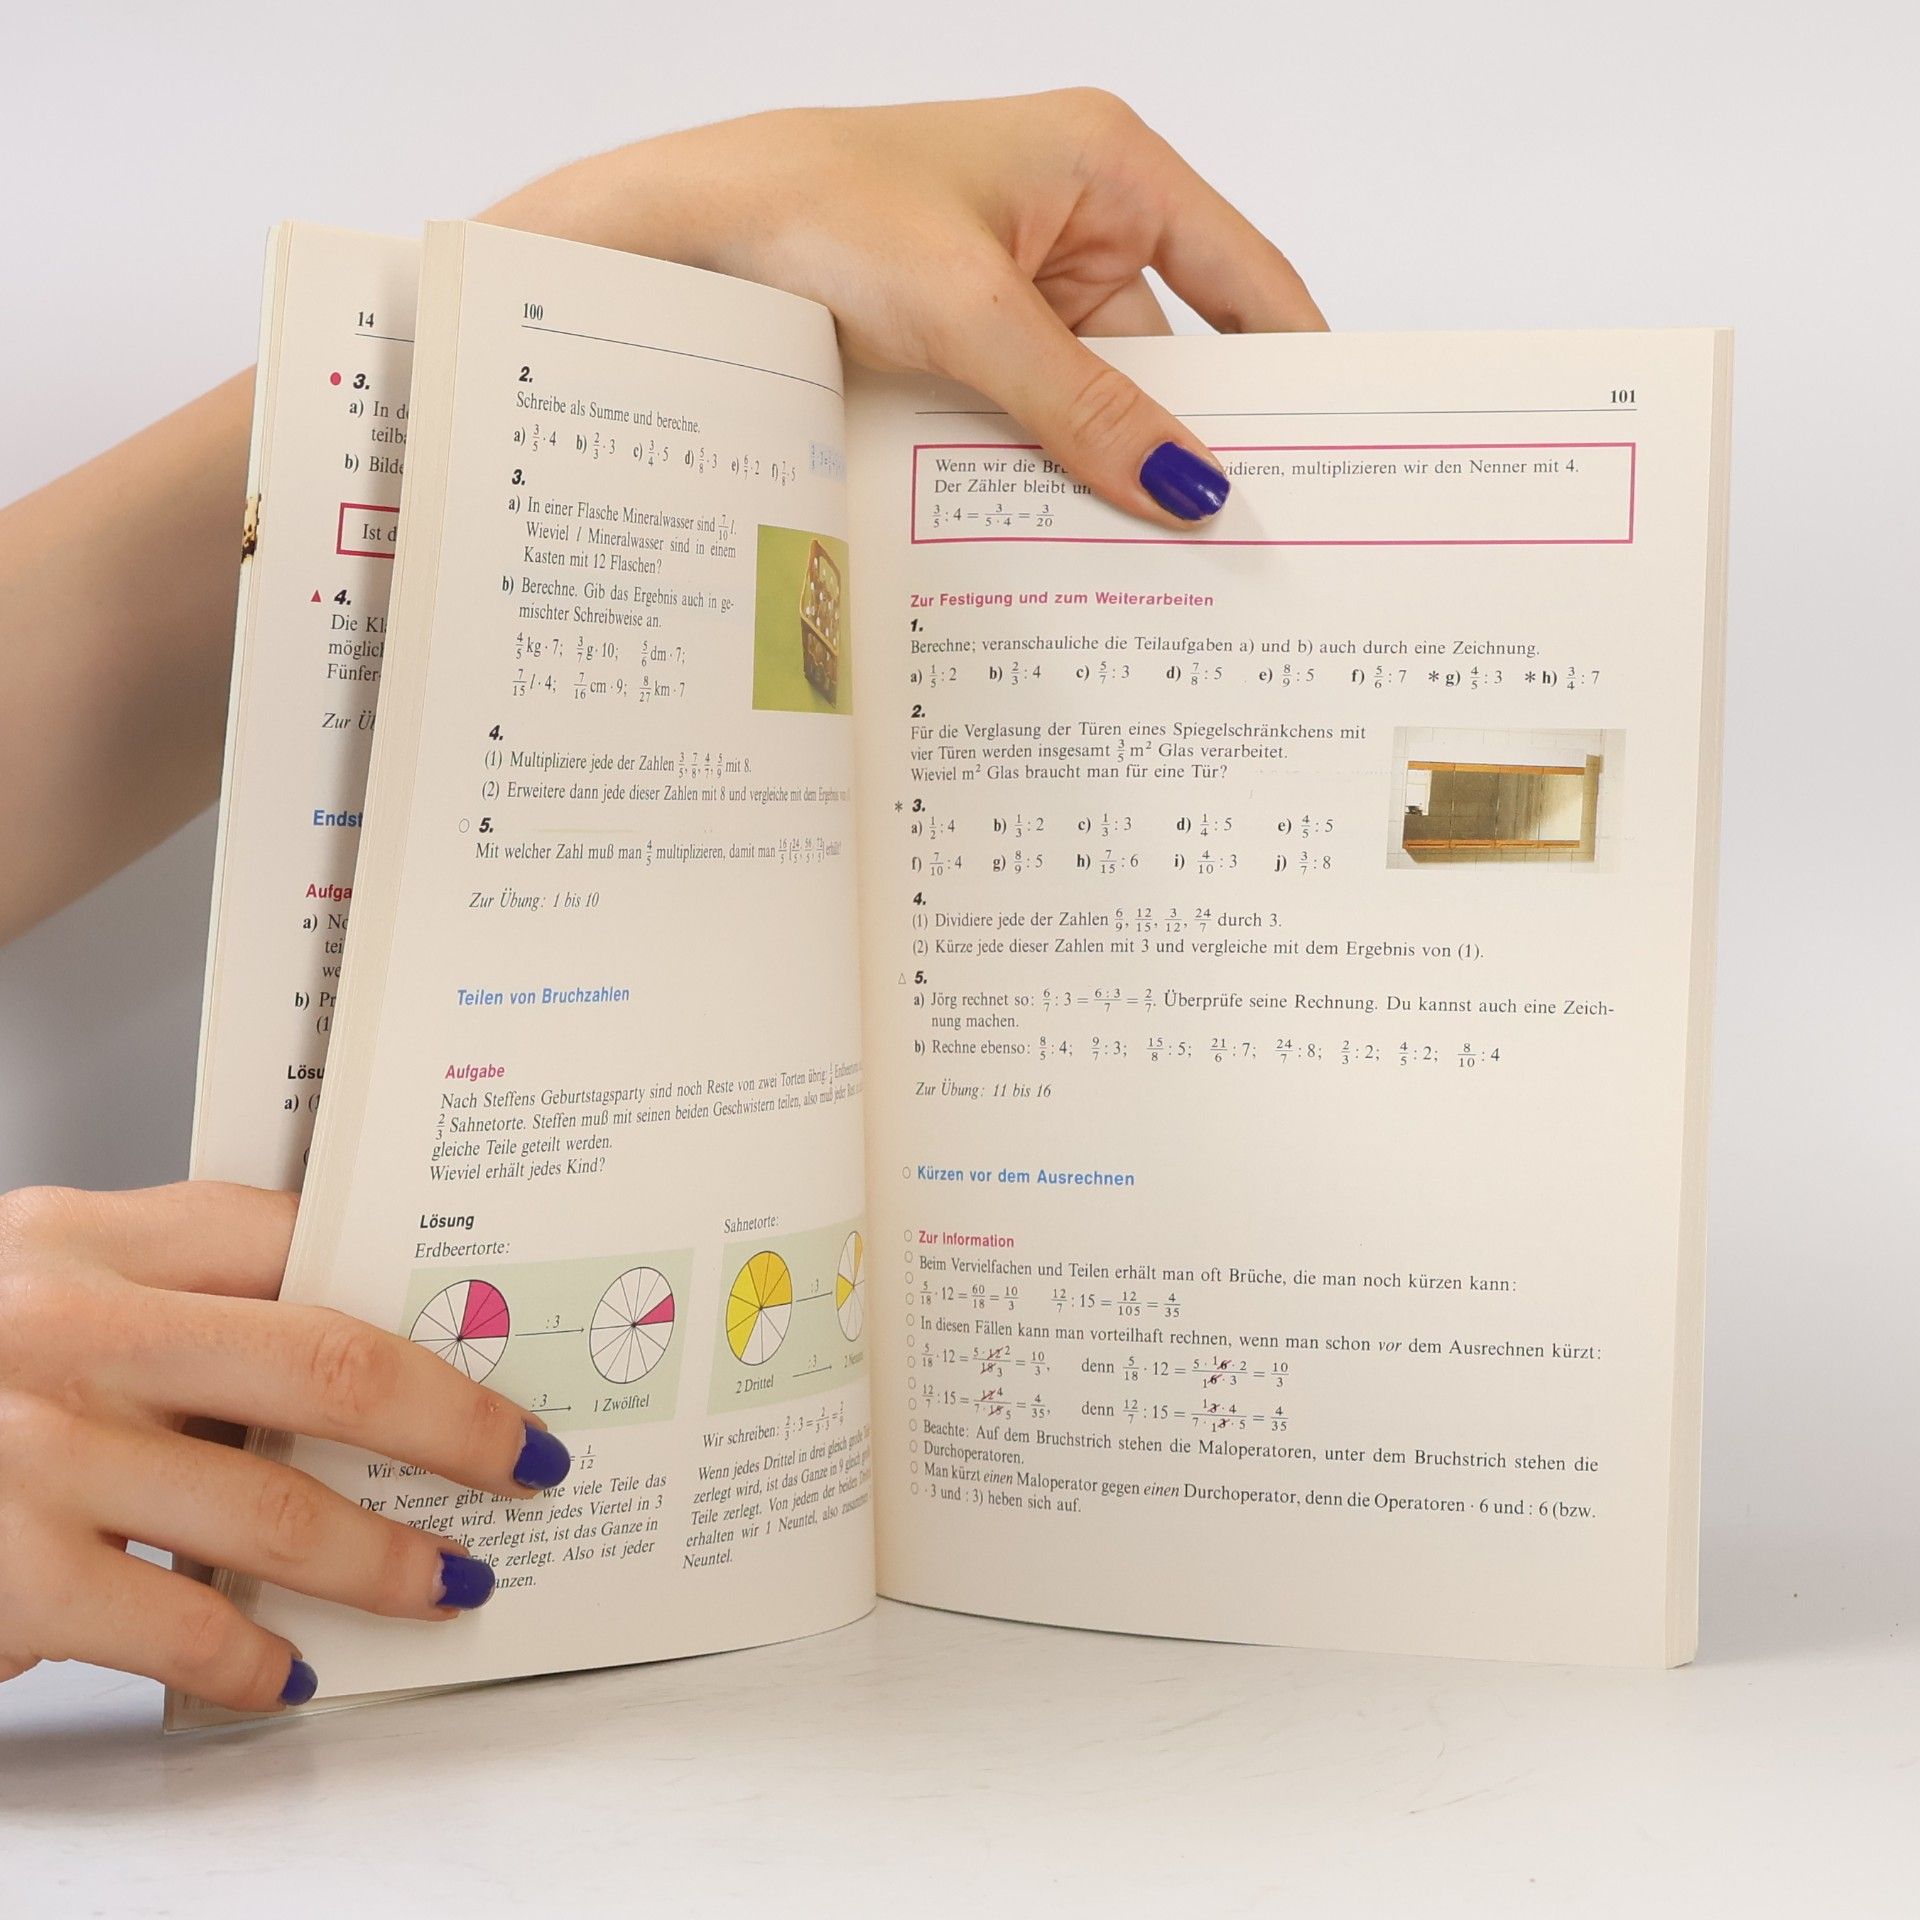 14
3.
a) In
teilb
b) Bild
Ist
4.
Die
möglic
Fünfer-
Zur
Endst
Aufga
a)
b)
Lösu
a)
100
2.
Schreibe als Summe und berechne.
a) 3/5 · 4 b) 2/3 · 3 c) 3/4 · 5 d) 5/8 · 3 e) 6/7 · 2 f) 7/8 · 5
3.
a) In einer Flasche Mineralwasser sind 7/10 l.
Wieviel l Mineralwasser sind in einem
Kasten mit 12 Flaschen?
b) Berechne. Gib das Ergebnis auch in ge-
mischter Schreibweise an.
4/5 kg · 7; 3/7 g · 10; 5/6 dm · 7;
7/15 l · 4; 7/16 cm · 9; 8/27 km · 7
4.
(1) Multipliziere jede der Zahlen 3/5, 7/8, 4/7, 5/9 mit 8.
(2) Erweitere dann jede dieser Zahlen mit 8 und vergleiche mit dem Ergebnis von
5.
Mit welcher Zahl muß man 4/5 multiplizieren, damit man 16/5 (24/5, 56/5, 72/5) erhält?
Zur Übung: 1 bis 10
Teilen von Bruchzahlen
Aufgabe
Nach Steffens Geburtstagsparty sind noch Reste von zwei Torten übrig: 1/4
2/3 Sahnetorte. Steffen muß mit seinen beiden Geschwistern teilen, also muß jeder
gleiche Teile geteilt werden.
Wieviel erhält jedes Kind?
Lösung
Erdbeertorte:
:3
:3
1 Zwölftel
= 1/12
Der Nenner gibt wie viele Teile das
zerlegt wird. Wenn jedes Viertel in 3
Teile zerlegt ist, ist das Ganze in
zerlegt. Also ist jeder
Sahnetorte:
:3
2 Drittel
:3
Wir schreiben: 2/3 : 3 = 2/3·3 = 2/9
Wenn jedes Drittel in drei gleich große
zerlegt wird, ist das Ganze in 9 gleich
Teile zerlegt. Von jedem der beiden
erhalten wir 1 Neuntel, also zusammen
Neuntel.
101
Wenn wir die multiplizieren wir den Nenner mit 4.
Der Zähler bleibt
3/5 : 4 = 3/5 · 4 = 3/20
Zur Festigung und zum Weiterarbeiten
1.
Berechne; veranschauliche die Teilaufgaben a) und b) auch durch eine Zeichnung.
a) 1/5 : 2 b) 2/3 : 4 c) 5/7 : 3 d) 7/8 : 5 e) 8/9 : 5 f) 5/6 : 7 * g) 4/5 : 3 * h) 3/4 : 7
2.
Für die Verglasung der Türen eines Spiegelschränkchens mit
vier Türen werden insgesamt 3/5 m² Glas verarbeitet.
Wieviel m² Glas braucht man für eine Tür?
* 3.
a) 1/2 : 4 b) 1/3 : 2 c) 1/3 : 3 d) 1/4 : 5 e) 4/5 : 5
f) 7/10 : 4 g) 8/9 : 5 h) 7/15 : 6 i) 4/10 : 3 j) 3/7 : 8
4.
(1) Dividiere jede der Zahlen 6/9, 12/15, 3/12, 24/7 durch 3.
(2) Kürze jede dieser Zahlen mit 3 und vergleiche mit dem Ergebnis von (1).
△ 5.
a) Jörg rechnet so: 6/7 : 3 = 6 : 3/7 = 2/7. Überprüfe seine Rechnung. Du kannst auch eine Zeich-
nung machen.
b) Rechne ebenso: 8/5 : 4; 9/7 : 3; 15/8 : 5; 21/6 : 7; 24/7 : 8; 2/3 : 2; 4/5 : 2; 8/10 : 4
Zur Übung: 11 bis 16
Kürzen vor dem Ausrechnen
Zur Information
Beim Vervielfachen und Teilen erhält man oft Brüche, die man noch kürzen kann:
5/18 · 12 = 60/18 = 10/3 12/7 : 15 = 12/105 = 4/35
In diesen Fällen kann man vorteilhaft rechnen, wenn man schon vor dem Ausrechnen kürzt:
5/18 · 12 = 5 · 12 2/18 3 = 10/3, denn 5/18 · 12 = 5 · 16 · 2/16 · 3 = 10/3
12/7 : 15 = 12 4/7 · 15 5 = 4/35, denn 12/7 : 15 = 13 · 4/7 · 13 · 5 = 4/35
Beachte: Auf dem Bruchstrich stehen die Maloperatoren, unter dem Bruchstrich stehen die
Durchoperatoren.
Man kürzt einen Maloperator gegen einen Durchoperator, denn die Operatoren · 6 und : 6 (bzw.
· 3 und : 3) heben sich auf.